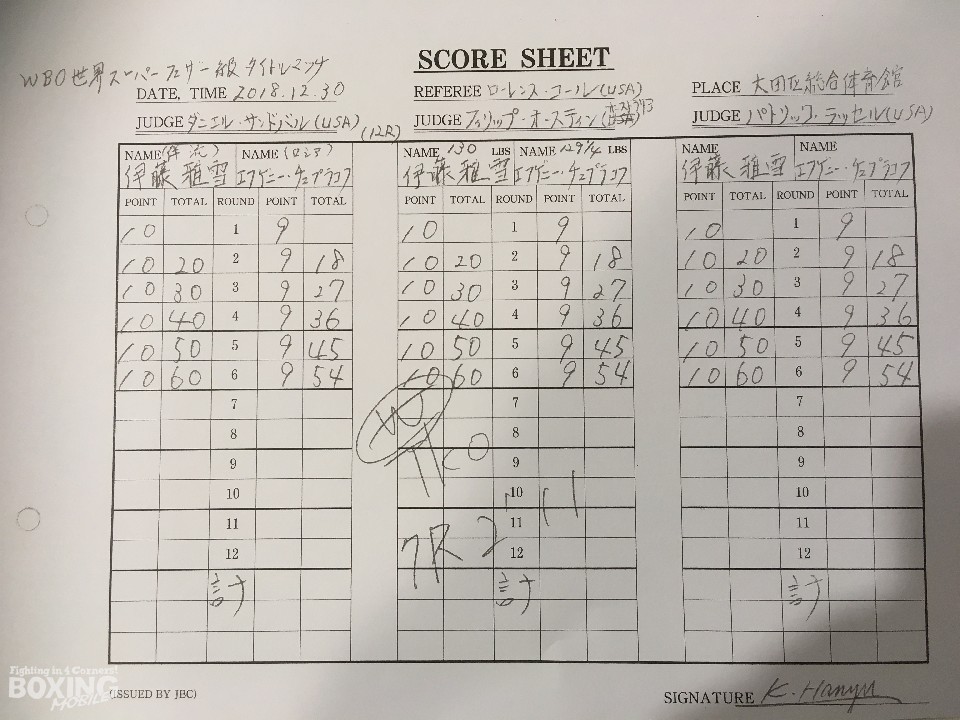 SCORE SHEET
WBO世界スーパーフェザー級タイトルマッチ
DATE, TIME 2018.12.30
REFEREE ローレンス・コール(USA)
PLACE 大田区総合体育館
JUDGE ダニエル・サンドバル(USA) (12R)
JUDGE フィリップ・オースティン
JUDGE パトリック・ラッセル(USA)
NAME (伴流) NAME (ロシア) NAME 130 LBS NAME 129 1/4 LBS NAME NAME
伊藤雅雪 エフゲニー・チュプラコフ 伊藤雅雪 エフゲニー・チュプラコフ 伊藤雅雪 エフゲニー・チュプラコフ
POINT TOTAL ROUND POINT TOTAL POINT TOTAL ROUND POINT TOTAL POINT TOTAL ROUND POINT TOTAL
10 1 9 10 1 9 10 1 9
10 20 2 9 18 10 20 2 9 18 10 20 2 9 18
10 30 3 9 27 10 30 3 9 27 10 30 3 9 27
10 40 4 9 36 10 40 4 9 36 10 40 4 9 36
10 50 5 9 45 10 50 5 9 45 10 50 5 9 45
10 60 6 9 54 10 60 6 9 54 10 60 6 9 54
7 7 7
8 8 8
9 TKO 9 9
10 10 10
11 11 11
12 7R 2'11 12 12
計 計 計
Fighting in 4 Corners!
BOXING
MOBILE
(ISSUED BY JBC)
SIGNATURE K. Hanyu